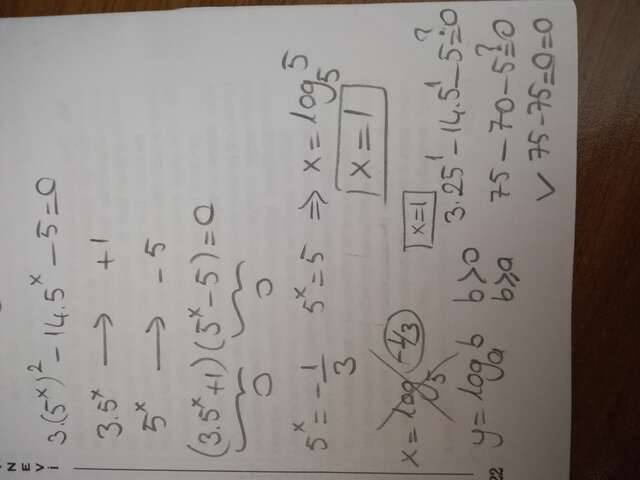 3.(5^x)² - 14.5^x - 5 = 0
3.5^x → +1
5^x → -5
(3.5^x+1)(5^x-5)=0
0 0
5^x = -1/3 5^x = 5 ⇒ x = log₅5
x = 1
x = log₅(-1/3)
y = log_a b b>0
b≥a
x=1
3.25¹ - 14.5¹ - 5 ≟ 0
75 - 70 - 5 ≟ 0
✓ 75-75=0=0
NEVİ
22